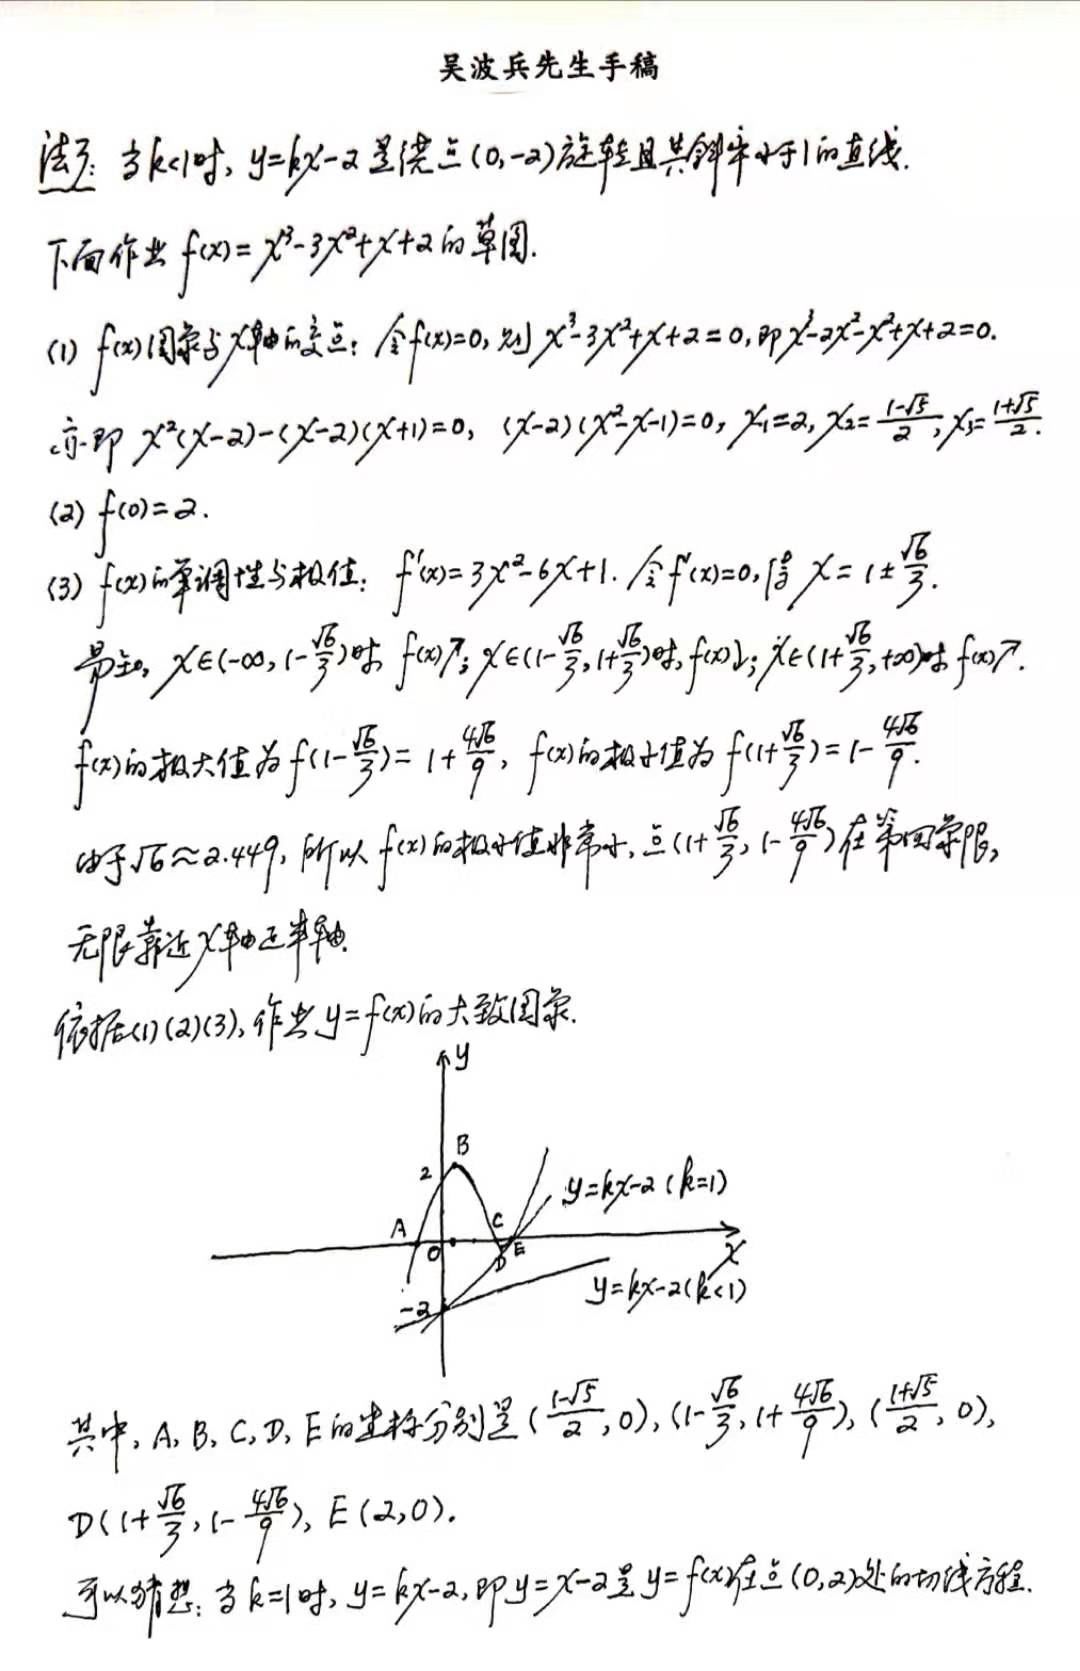 吴波兵先生手稿
法3: 当k<1时, y=kx-2是绕点(0,-2)旋转且其斜率小于1的直线.
下面作出 f(x)=x³-3x²+x+2的草图.
(1) f(x)图象与x轴的交点: 令f(x)=0, 则 x³-3x²+x+2=0, 即x³-2x²-x²+x+2=0.
亦即 x²(x-2)-(x-2)(x+1)=0, (x-2)(x²-x-1)=0, x₁=2, x₂=(1-√5)/2, x₃=(1+√5)/2.
(2) f(0)=2.
(3) f(x)的单调性与极值: f′(x)=3x²-6x+1. 令f′(x)=0, 得 x=1±√6/3.
易知, x∈(-∞, 1-√6/3)时, f(x)↗; x∈(1-√6/3, 1+√6/3)时, f(x)↘; x∈(1+√6/3, +∞)时 f(x)↗.
f(x)的极大值为f(1-√6/3)=1+4√6/9, f(x)的极小值为f(1+√6/3)=1-4√6/9.
由于√6≈2.449, 所以f(x)的极小值非常小, 点(1+√6/3, 1-4√6/9)在第四象限,
无限靠近x轴正半轴.
依据(1)(2)(3), 作出y=f(x)的大致图象.
y
B
2
y=kx-2 (k=1)
A
C
O
D
E
x
y=kx-2(k<1)
-2
其中, A, B, C, D, E的坐标分别是((1-√5)/2, 0), (1-√6/3, 1+4√6/9), ((1+√5)/2, 0),
D(1+√6/3, 1-4√6/9), E(2,0).
可以猜想: 当k=1时, y=kx-2, 即y=x-2是y=f(x)在点(0,2)处的切线方程.